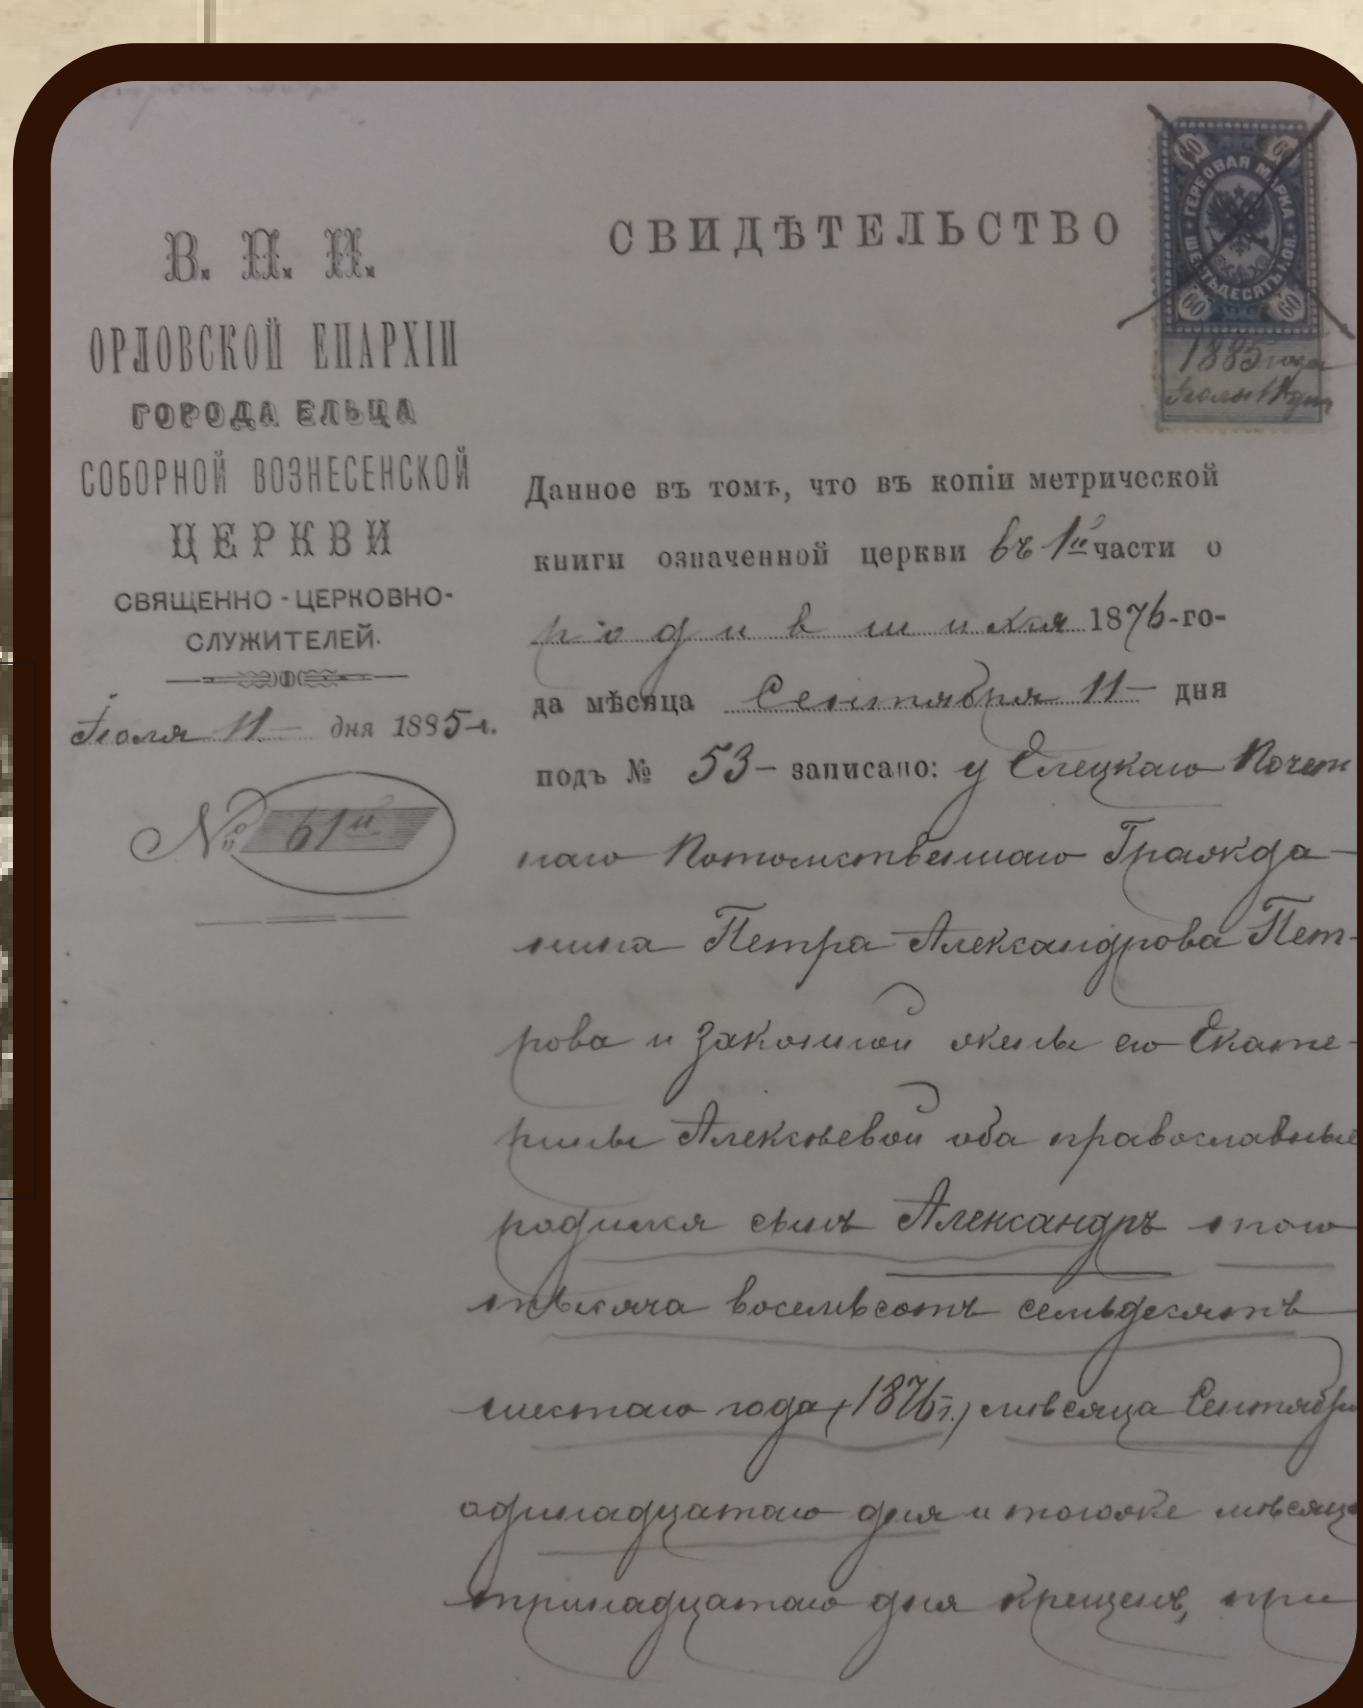 В. П. И.
ОРЛОВСКОЙ ЕПАРХІИ
ГОРОДА ЕЛЬЦА
СОБОРНОЙ ВОЗНЕСЕНСКОЙ
ЦЕРКВИ
СВЯЩЕННО-ЦЕРКОВНО-
СЛУЖИТЕЛЕЙ.
Іюля 11 — дня 1885 г.
№ 61й
СВИДѢТЕЛЬСТВО
60 60
ГЕРБОВАЯ МАРКА
ШЕСТЬДЕСЯТЪ КОП.
60 60
1885 года
Іюля 11 дня
Данное въ томъ, что въ копіи метрической
книги означенной церкви въ 1й части о
родившихся 1876-го-
да мѣсяца Сентября 11 — дня
подъ № 53 — записано: у Елецкаго Почет
наго Потомственнаго Гражда-
нина Петра Александрова Пет-
рова и законной жены его Екате-
рины Алексѣевой оба православные
родился сынъ Александръ
тысяча восемьсотъ семьдесятъ
шестаго года (1876 г.) мѣсяца Сентября
одинадцатаго дня и тогоже мѣсяца
тринадцатаго дня крещенъ, при